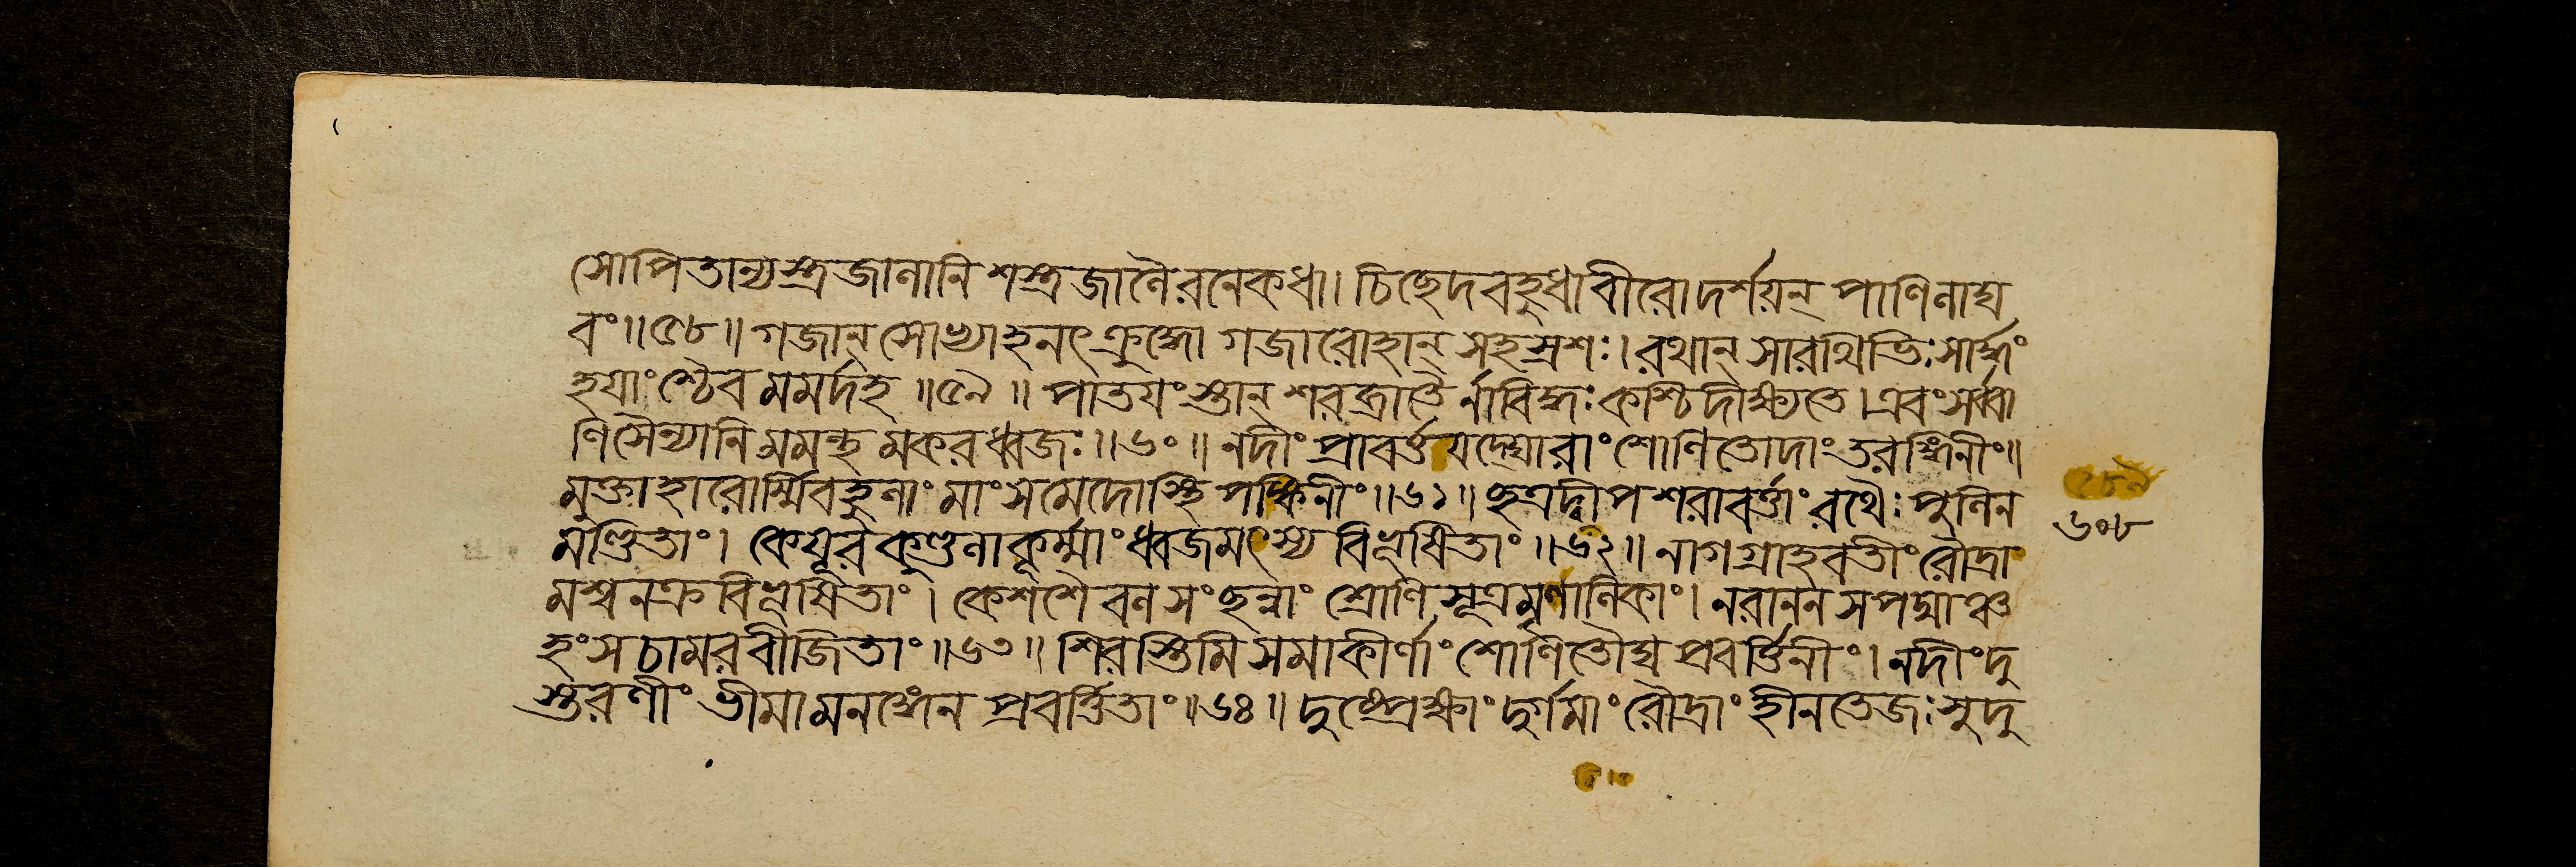 সোপিতান্যস্ত্রজালানিশস্ত্রজালৈরনেকধা। চিছেদবহুধাবীরোদর্শয়ন্ পাণিলাঘ
বং॥৫৮॥ গজান্ সোভ্যাহনৎ ক্রুদ্ধো গজারোহান্ সহস্রশঃ। রথান্ সারথিভিঃ সার্দ্ধং
হয়াংশ্চৈব মমর্দহ ॥৫৯॥ পাতয়ংস্তান্ শরব্রাতৈর্নাবিদ্ধঃ কশ্চিদীক্ষ্যতে। এবং সর্ব্বা
ণিসৈন্যানি মমন্থ মকরধ্বজঃ॥৬০॥ নদীং প্রাবর্ত্তয়দ্ঘোরাং শোণিতোদাং তরঙ্গিনীং॥
মুক্তাহারোর্ম্মিবহুলাং মাংসমেদোস্থিপঙ্কিলীং॥৬১॥ ছত্রদ্বীপ শরাবর্ত্তাং রথৈঃ পুলিন
মণ্ডিতাং। কেয়ূরকুণ্ডলাকূর্ম্মাং ধ্বজমৎস্য বিভূষিতাং॥৬২॥ নাগগ্রাহবতীং রৌদ্রা
মশ্বনক্রবিভূষিতাং। কেশশৈবলসংছন্নাং শ্রোণিসূত্রমৃণালিকাং। নরাননসপদ্মাঞ্চ
হংসচামরবীজিতাং॥৬৩॥ শিরস্তিমিসমাকীর্ণাং শোণিতৌঘপ্রবর্ত্তিনীং। নদীংদু
স্তরণীং ভীমামনঙ্গেন প্রবর্ত্তিতাং॥৬৪॥ দুষ্প্রেক্ষাং দুর্গমাং রৌদ্রাং হীনতেজঃসুদু
৬০৮